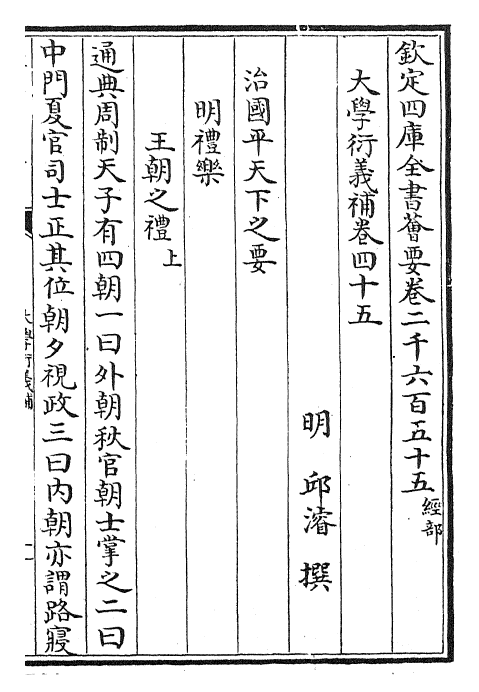 欽定四庫全書薈要卷二千六百五十五經部
大學衍義補卷四十五
明　邱濬　撰
治國平天下之要
明禮樂
王朝之禮上
通典周制天子有四朝一曰外朝秋官朝士掌之二曰
中門夏官司士正其位朝夕視政三曰內朝亦謂路寢
大學衍義補